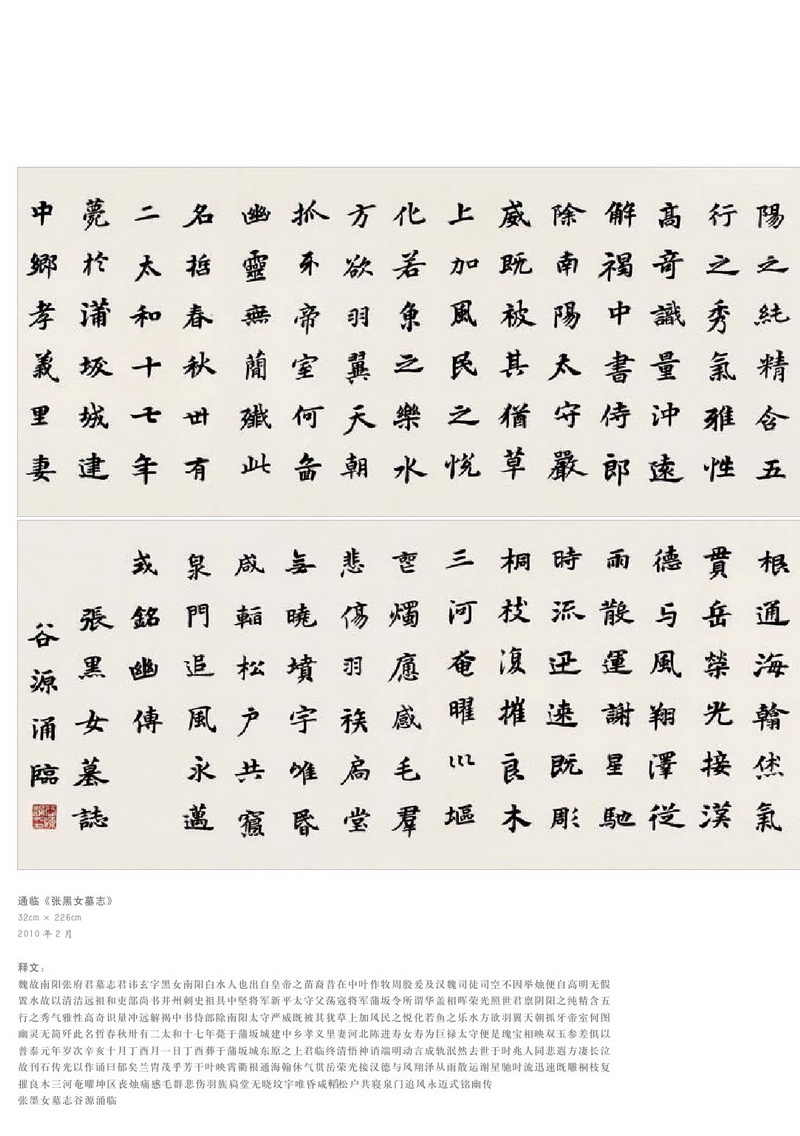 陽之純精含五
行之秀氣雅性
高奇識量沖遠
解褐中書侍郎
除南陽太守嚴
威既被其猶草
上加風民之悅
化若魚之樂水
方欲羽翼天朝
抓牙帝室何啚
幽靈無簡殲此
名哲春秋卅有
二太和十七年
薨於蒲坂城建
中鄉孝義里妻
根通海翰烋氣
貫岳榮光接漢
德与風翔澤從
雨散運謝星馳
時流迅速既彫
桐枝復摧良木
三河奄曜巛塸
燭感毛羣
悲傷羽族扃堂
無曉墳宇唯昏
咸韜松戶共寢
泉門追風永邁
式銘幽傳
張黑女墓誌
谷源涌臨
通临《张黑女墓志》
32cm × 226cm
2010 年 2 月
释文：
魏故南阳张府君墓志君讳玄字黑女南阳白水人也出自皇帝之苗裔昔在中叶作牧周殷爰及汉魏司徒司空不因举烛便自高明无假
置水故以清洁远祖和吏部尚书并州刺史祖具中坚将军新平太守父荡寇将军蒲坂令所谓华盖相晖荣光照世君禀阴阳之纯精含五
行之秀气雅性高奇识量冲远解褐中书侍郎除南阳太守严威既被其犹草上加风民之悦化若鱼之乐水方欲羽翼天朝抓牙帝室何图
幽灵无简歼此名哲春秋卅有二太和十七年薨于蒲坂城建中乡孝义里妻河北陈进寿女寿为巨禄太守便是瑰宝相映双玉参差俱以
普泰元年岁次辛亥十月丁酉月一日丁酉葬于蒲坂城东原之上君临终清悟神诮端明动言成轨泯然去世于时兆人同悲遐方凄长泣
故刊石传光以作诵曰郁矣兰胄茂乎芳干叶映霄衢根通海翰休气贯岳荣光接汉德与风翔泽从雨散运谢星驰时流迅速既雕桐枝复
摧良木三河奄曜坤区丧烛痛感毛群悲伤羽族扃堂无晓坟宇唯昏咸韬松户共寝泉门追风永迈式铭幽传
张墨女墓志谷源涌临